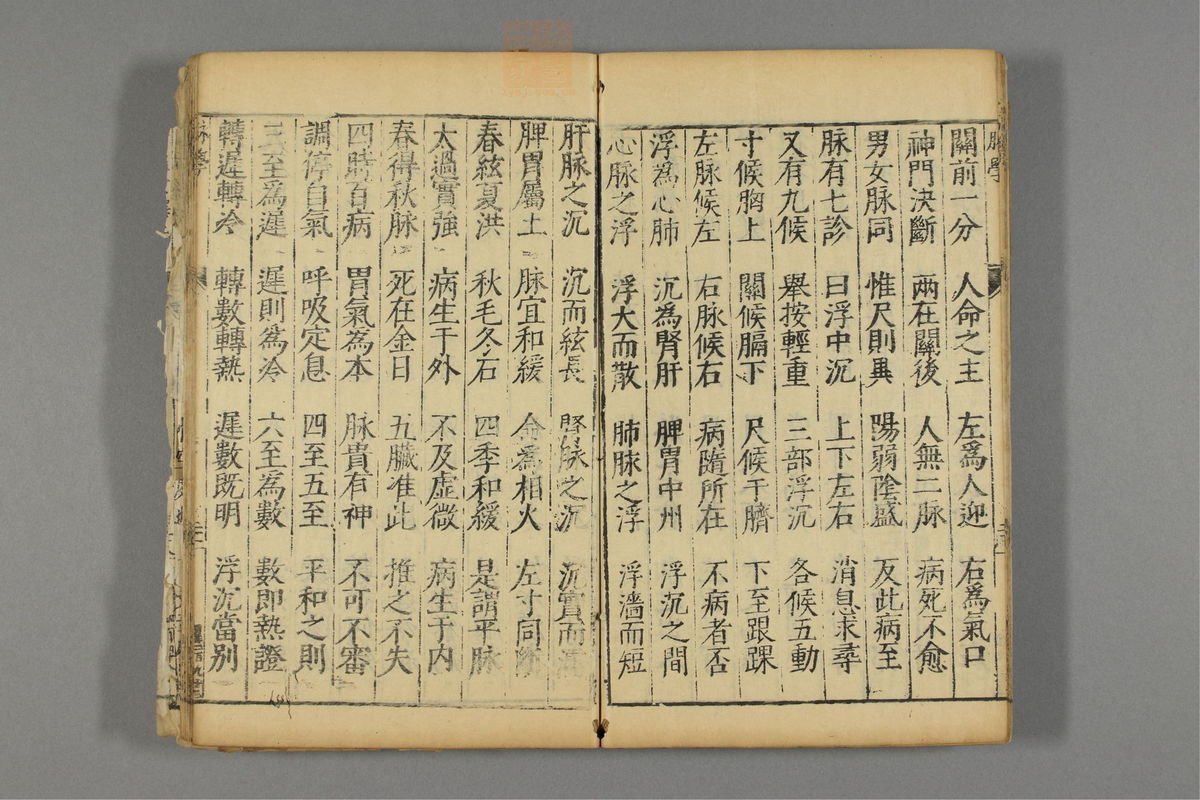 脉學
關前一分 人命之主 左爲人迎 右爲氣口
神門決斷 兩在關後 人無二脉 病死不愈
男女脉同 惟尺則異 陽弱陰盛 反此病至
脉有七診 曰浮中沉 上下左右 消息求尋
又有九候 舉按輕重 三部浮沉 各候五動
寸候胸上 關候膈下 尺候于臍 下至跟踝
左脉候左 右脉候右 病隨所在 不病者否
浮爲心肺 沉爲腎肝 脾胃中州 浮沉之間
心脉之浮 浮大而散 肺脉之浮 浮濇而短
肝脉之沉 沉而絃長 腎脉之沉 沉實而
脾胃屬土 脉宜和緩 命爲相火 左寸同
春絃夏洪 秋毛冬石 四季和緩 是謂平脉
太過實強 病生于外 不及虛微 病生于内
春得秋脉 死在金日 五臟准此 推之不失
四時百病 胃氣爲本 脉貴有神 不可不審
調停自氣 呼吸定息 四至五至 平和之則
三至爲遲 遲則爲冷 六至爲數 數即熱證
轉遲轉冷 轉數轉熱 遲數既明 浮沉當别